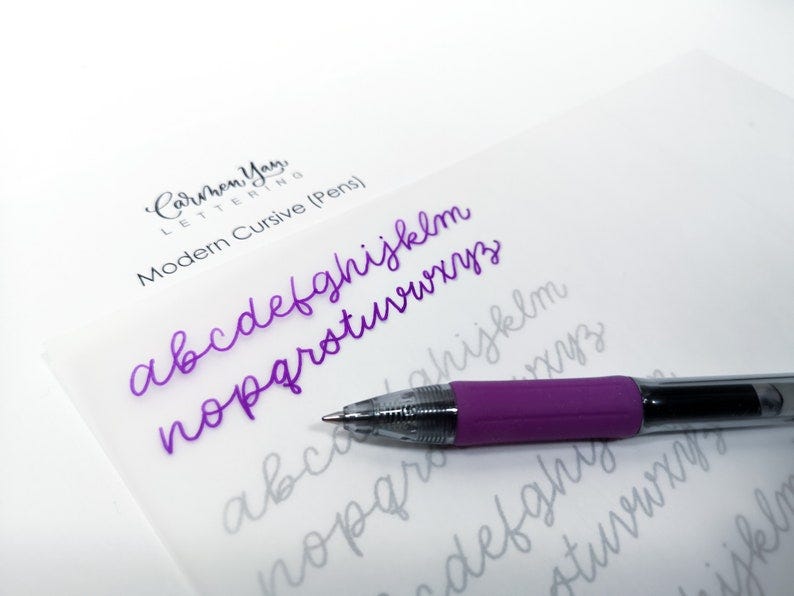 Carmen Yan
LETTERING
Modern Cursive (Pens)
abcdefghijklm
nopqrstuvwxyz
abcd ghijklm
nopqrs wxyz
abcdefghij
nopqrstuvwxyz
klm